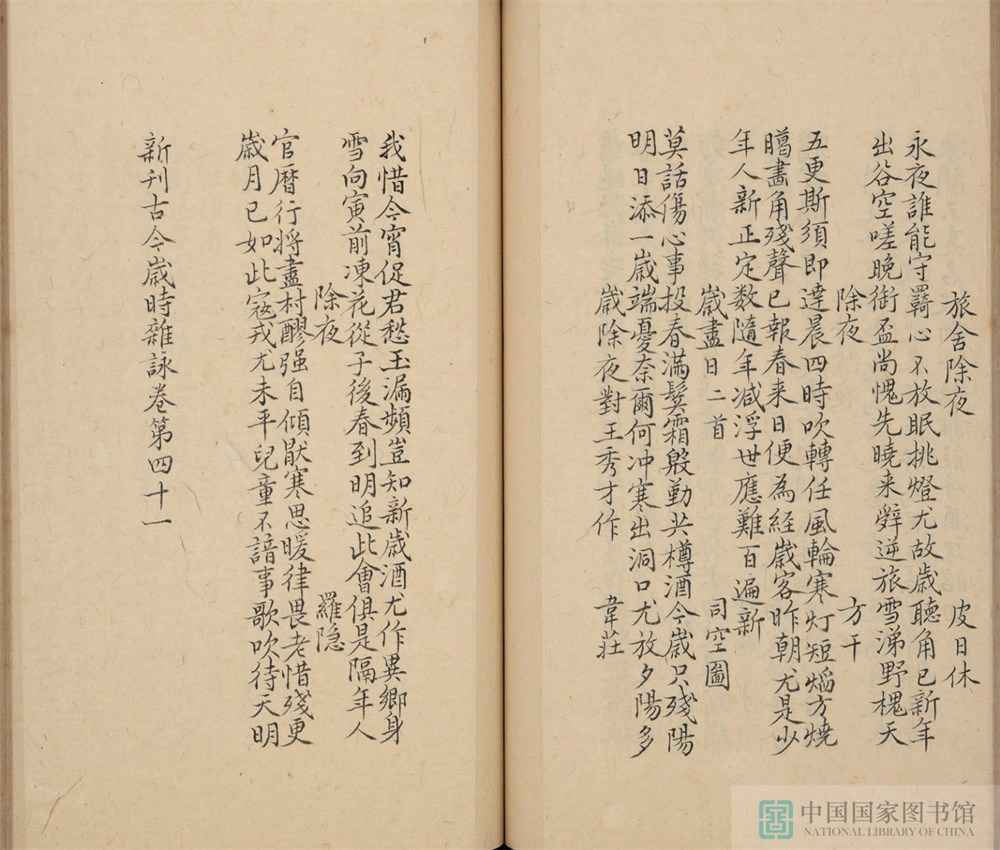 旅舍除夜　皮日休
永夜誰能守羇心不放眠挑燈尤故歲聽角已新年
出谷空嗟晚銜盃尚愧先曉来辤逆旅雪涕野槐天
除夜　方干
五更斯須即達晨四時吹轉任風輪寒灯短熖方燒
腊畫角殘聲已報春来日便為經歲客昨朝尤是少
年人新正定数隨年减浮世應難百遍新
歲盡日二首　司空圖
莫話傷心事投春滿鬓霜殷勤共樽酒今歲只殘陽
明日添一歲端憂奈爾何冲寒出洞口尤放夕陽多
歲除夜對王秀才作　韋莊
我惜今宵促君愁玉漏頻豈知新歲酒尤作異鄉身
雪向寅前凍花從子後春到明追此會俱是隔年人
除夜　羅隐
官曆行將盡村醪强自傾厭寒思暖律畏老惜殘更
歲月已如此寇戎尤未平兒童不諳事歌吹待天明
新刊古今歲時雜詠卷第四十一
中国国家图书馆
NATIONAL LIBRARY OF CHINA